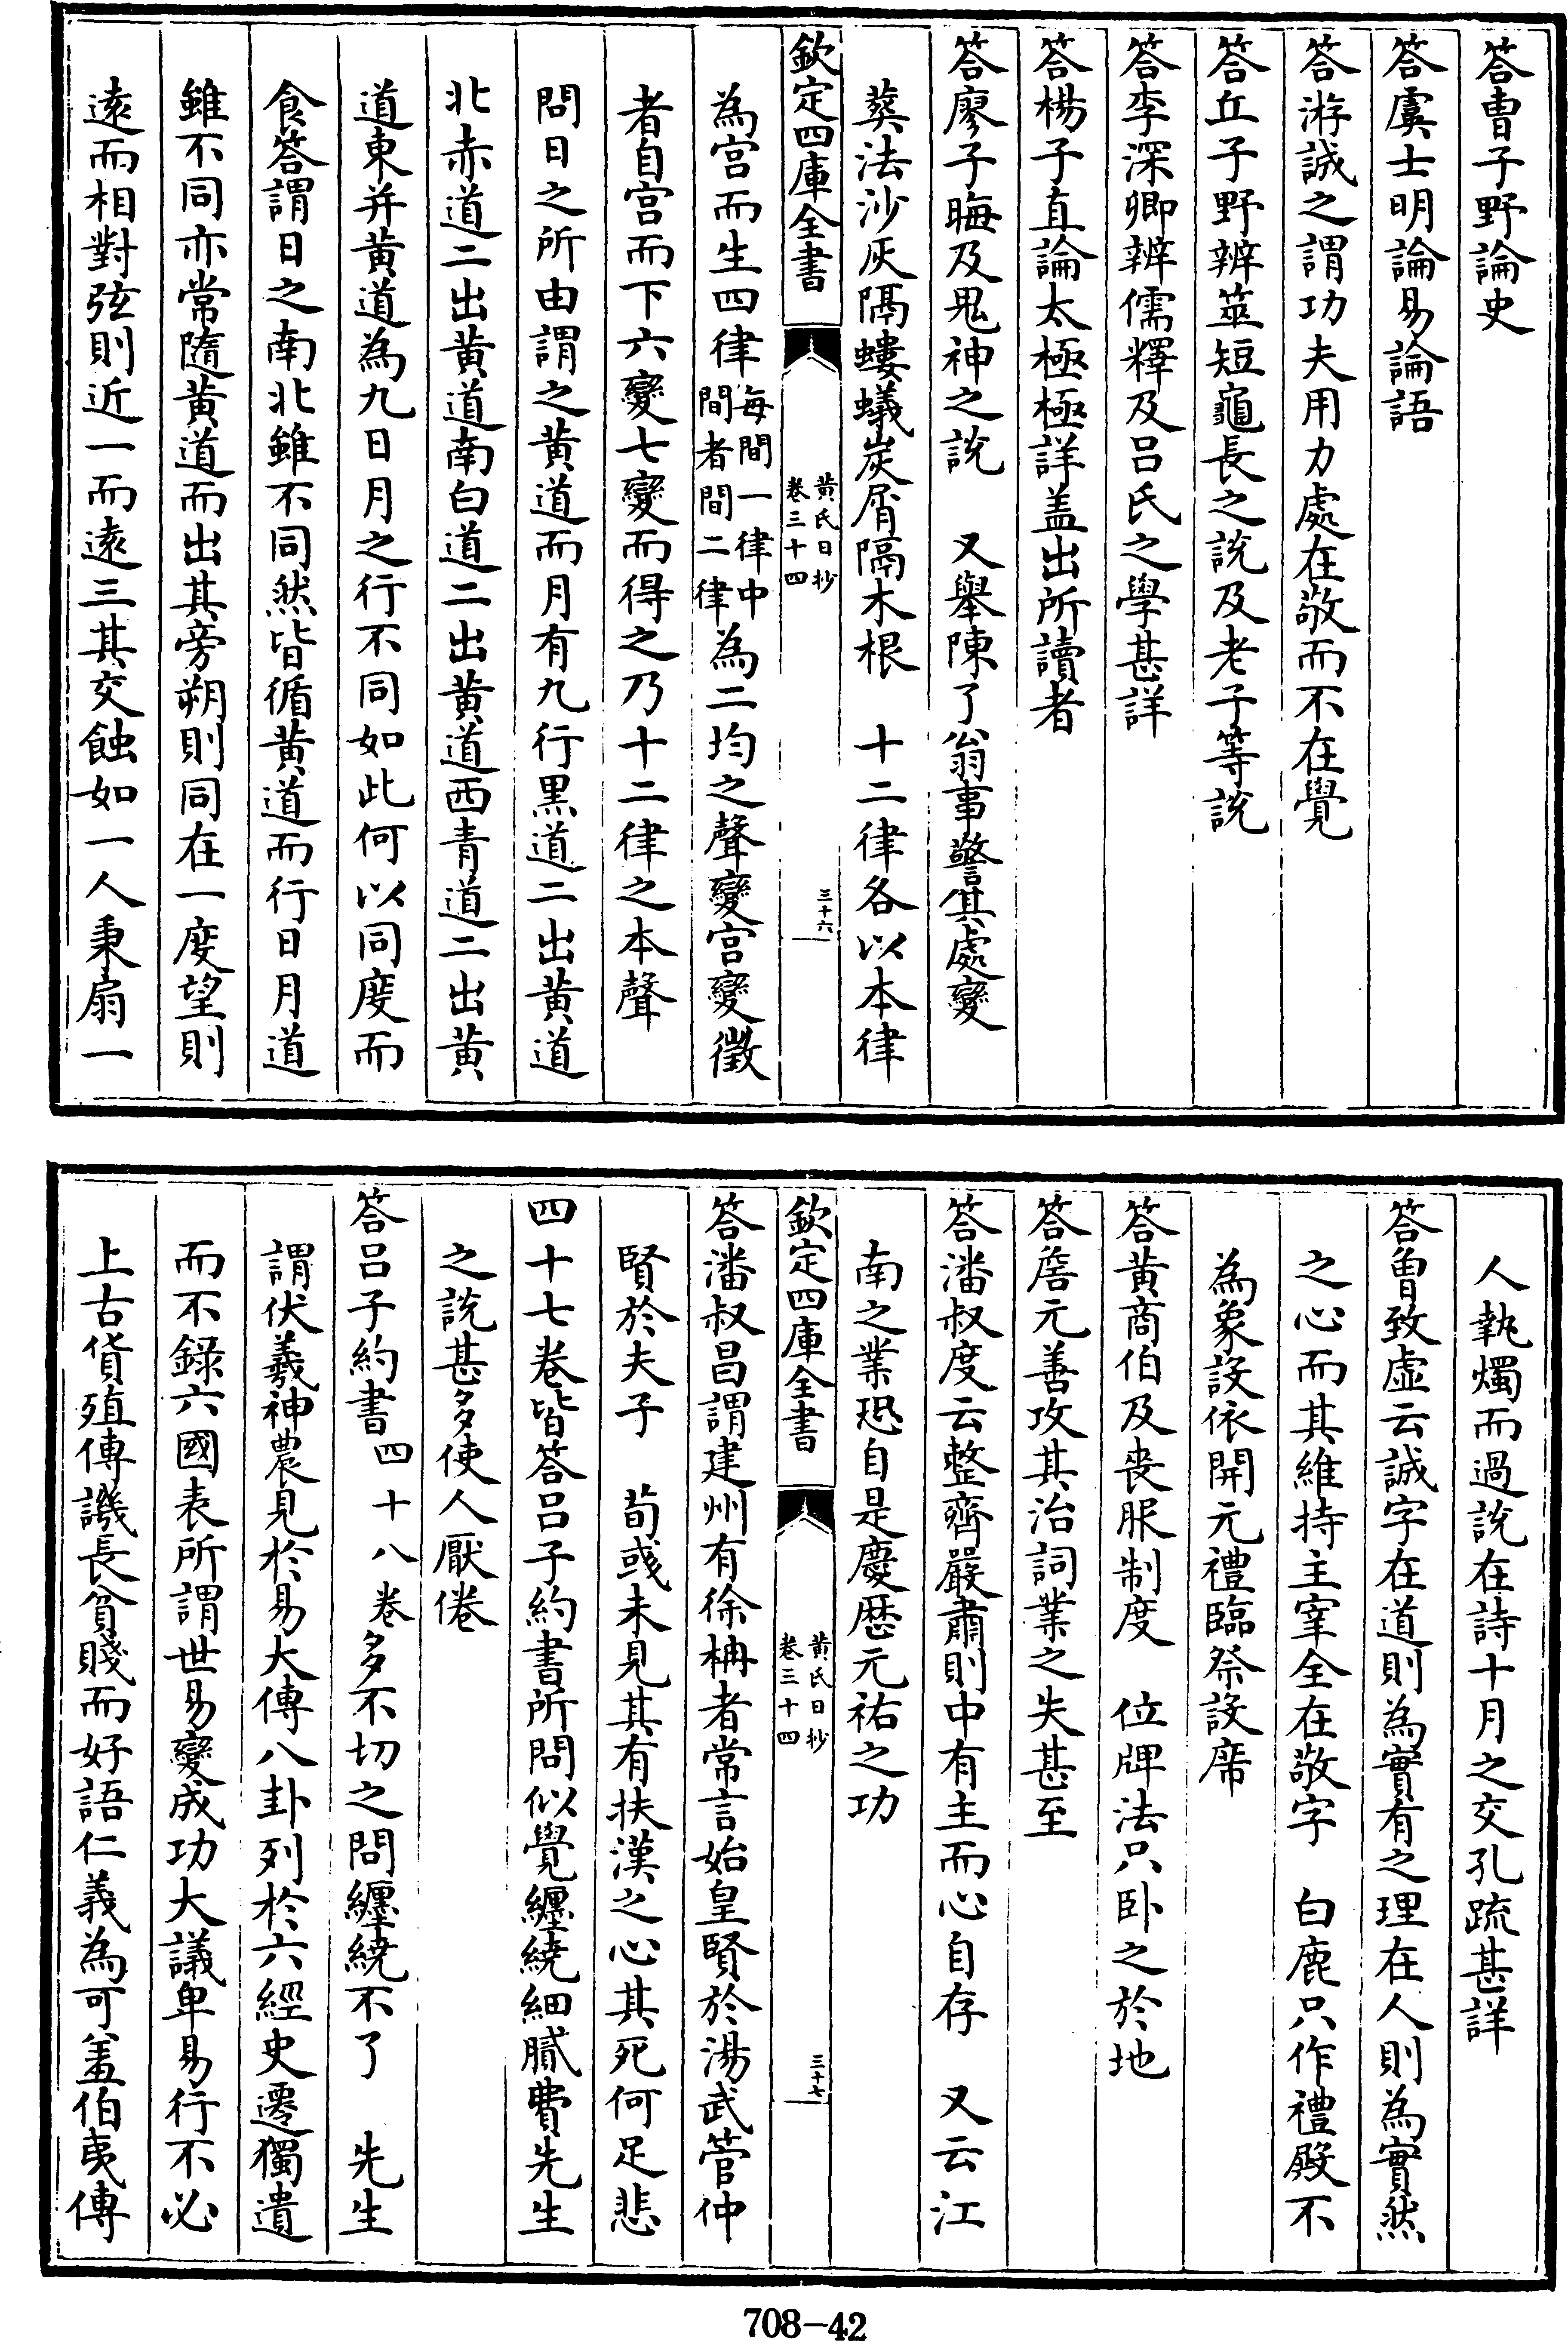 答曹子野論史
答虞士明論易論語
答游誠之謂功夫用力處在敬而不在覺
答丘子野辨筮短龜長之說及老子等說
答李深卿辨儒釋及呂氏之學甚詳
答楊子直論太極極詳盖出所讀者
答廖子晦及鬼神之說　又舉陳了翁事警其處變
葬法沙灰隔螻蟻炭屑隔木根　十二律各以本律
欽定四庫全書
黄氏日抄
卷三十四
三十六
為宫而生四律每間一律中間者間二律為二均之聲變宫變徵
者自宫而下六變七變而得之乃十二律之本聲
問日之所由謂之黄道而月有九行黒道二出黄道
北赤道二出黄道南白道二出黄道西青道二出黄
道東并黄道為九日月之行不同如此何以同度而
食答謂日之南北雖不同然皆循黄道而行日月道
雖不同亦常隨黄道而出其旁朔則同在一度望則
遠而相對弦則近一而遠三其交蝕如一人秉扇一
人執燭而過說在詩十月之交孔疏甚詳
答曾致虚云誠字在道則為實有之理在人則為實然
之心而其維持主宰全在敬字　白鹿只作禮殿不
為象設依開元禮臨祭設席
答黄商伯及喪服制度　位牌法只卧之於地
答詹元善攻其治詞業之失甚至
答潘叔度云整齊嚴肅則中有主而心自存　又云江
南之業恐自是慶歴元祐之功
欽定四庫全書
黄氏日抄
卷三十四
三十七
答潘叔昌謂建州有徐柟者常言始皇賢於湯武管仲
賢於夫子　荀彧未見其有扶漢之心其死何足悲
四十七卷皆答呂子約書所問似覺纒繞細膩費先生
之說甚多使人厭倦
答呂子約書四十八卷多不切之問纒繞不了　先生
謂伏羲神農見於易大傳八卦列於六經史遷獨遺
而不錄六國表所謂世易變成功大議卑易行不必
上古貨殖傳譏長貧賤而好語仁義為可羞伯夷傳
708-42